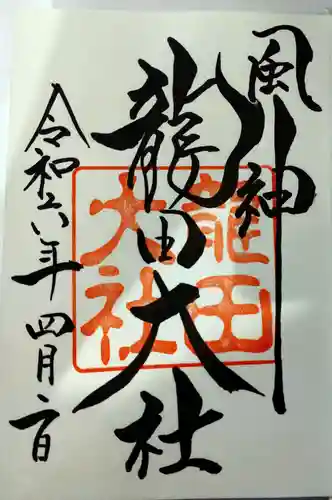 風神
龍田大社
令和六年四月二日
龍田
大社